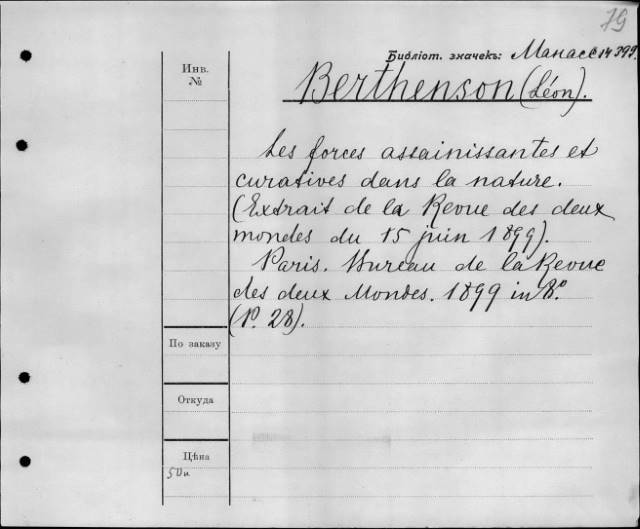 79
Библіот. значекъ: Манасс 14399.
Инв.
№
Berthenson (Léon).
Les forces assainissantes et
curatives dans la nature.
(Extrait de la Revue des deux
mondes du 15 juin 1899).
Paris. Bureau de la Revue
des deux Mondes. 1899 in 8°.
(P. 28).
По заказу
Откуда
Цѣна
50 к.